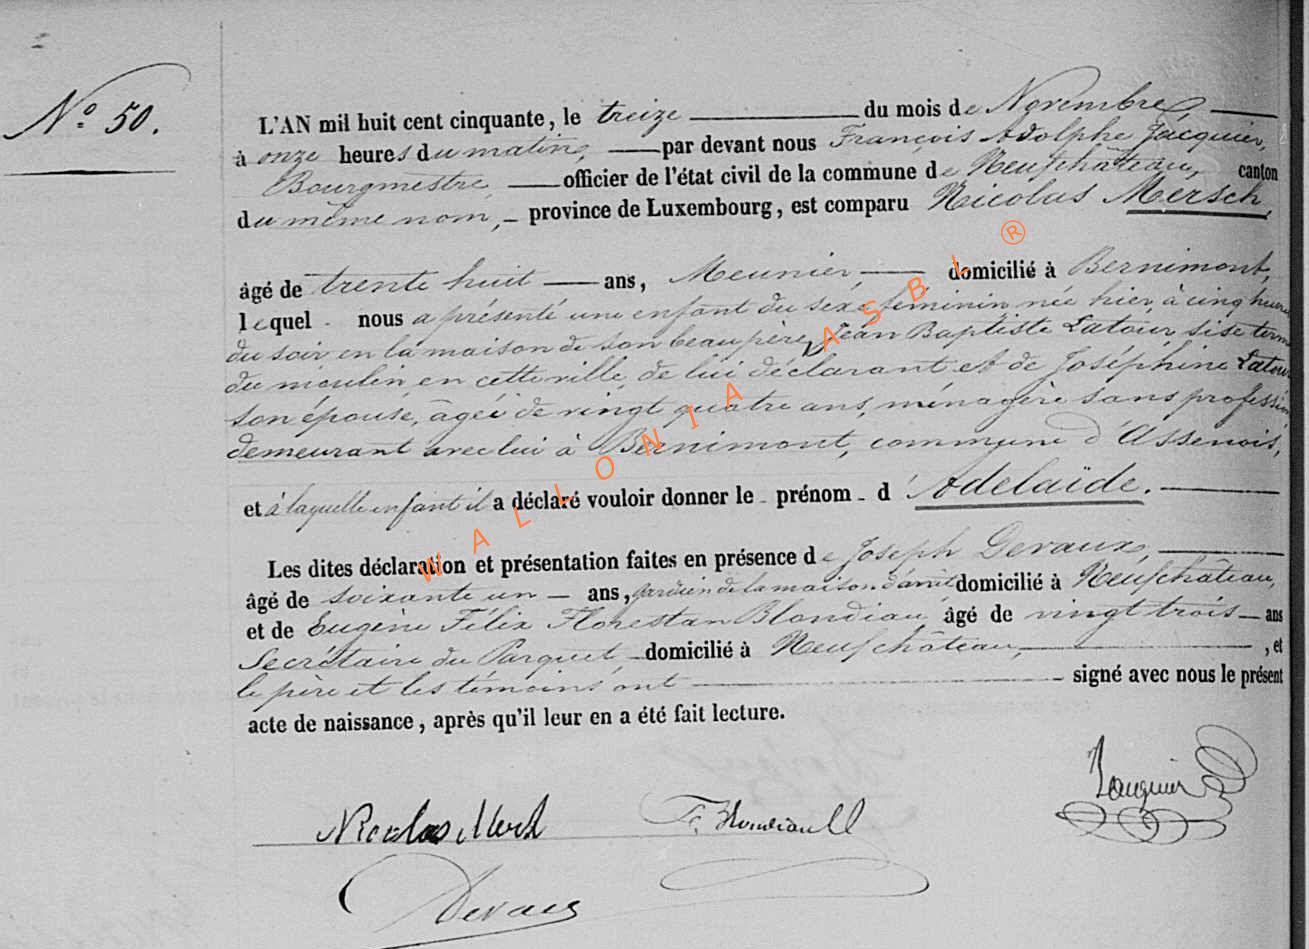 N° 50.
L'AN mil huit cent cinquante, le treize du mois de Novembre,
à onze heures du matin, par devant nous François Adolphe Jacquier,
Bourgmestre, officier de l'état civil de la commune de Neufchâteau, canton
du même nom, province de Luxembourg, est comparu Nicolas Mersch,
âgé de trente huit ans, Meunier, domicilié à Bernimont,
lequel nous a présenté une enfant du sexe féminin née hier, à cinq heures
du soir en la maison de son beau père, Jean Baptiste Latour, sise
du moulin en cette ville, de lui déclarant et de Joséphine Latour
son épouse, âgée de vingt quatre ans, ménagère sans profession
demeurant avec lui à Bernimont, commune d'Assenois,
et à laquelle enfant il a déclaré vouloir donner le prénom d'Adelaïde.
Les dites déclaration et présentation faites en présence de Joseph Devaux,
âgé de soixante un ans, gardien de la maison d'arrêt domicilié à Neufchâteau,
et de Eugène Félix Florestan Blondiau, âgé de vingt trois ans
Secrétaire du Parquet, domicilié à Neufchâteau, , et
le père et les témoins ont signé avec nous le présent
acte de naissance, après qu'il leur en a été fait lecture.
Jacquier
Nicolas Mersch F. Blondiau
Devaux
WALLONIA ASBL ®